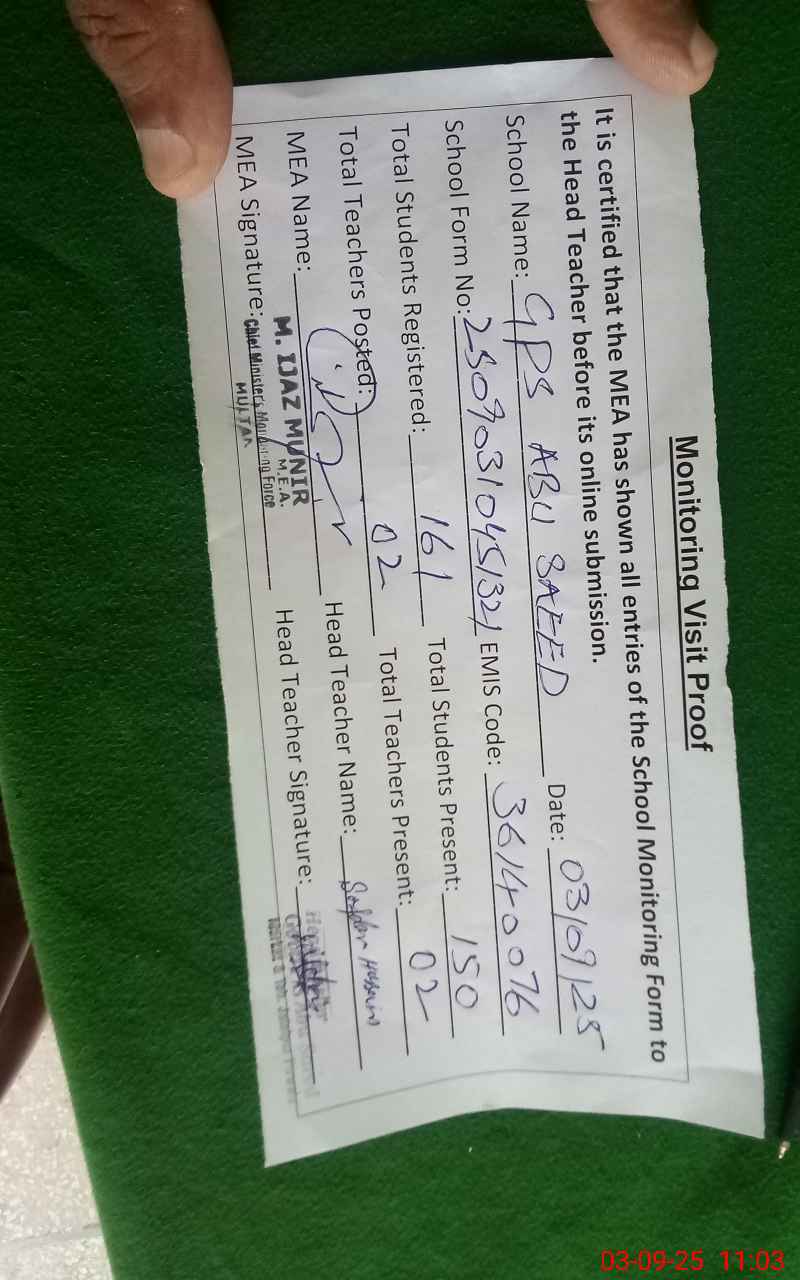 Monitoring Visit Proof
It is certified that the MEA has shown all entries of the School Monitoring Form to
the Head Teacher before its online submission.
School Name: GPS ABU SAEED Date: 03/09/25
School Form No: 25090310451321 EMIS Code: 36140076
Total Students Registered: 161 Total Students Present: 150
Total Teachers Posted: 02 Total Teachers Present: 02
MEA Name: Head Teacher Name: Safdar Hussain
M. IJAZ MUNIR
M.E.A.
MEA Signature: Chief Minister's Monitoring Force Head Teacher Signature:
MULTAN
03-09-25 11:03